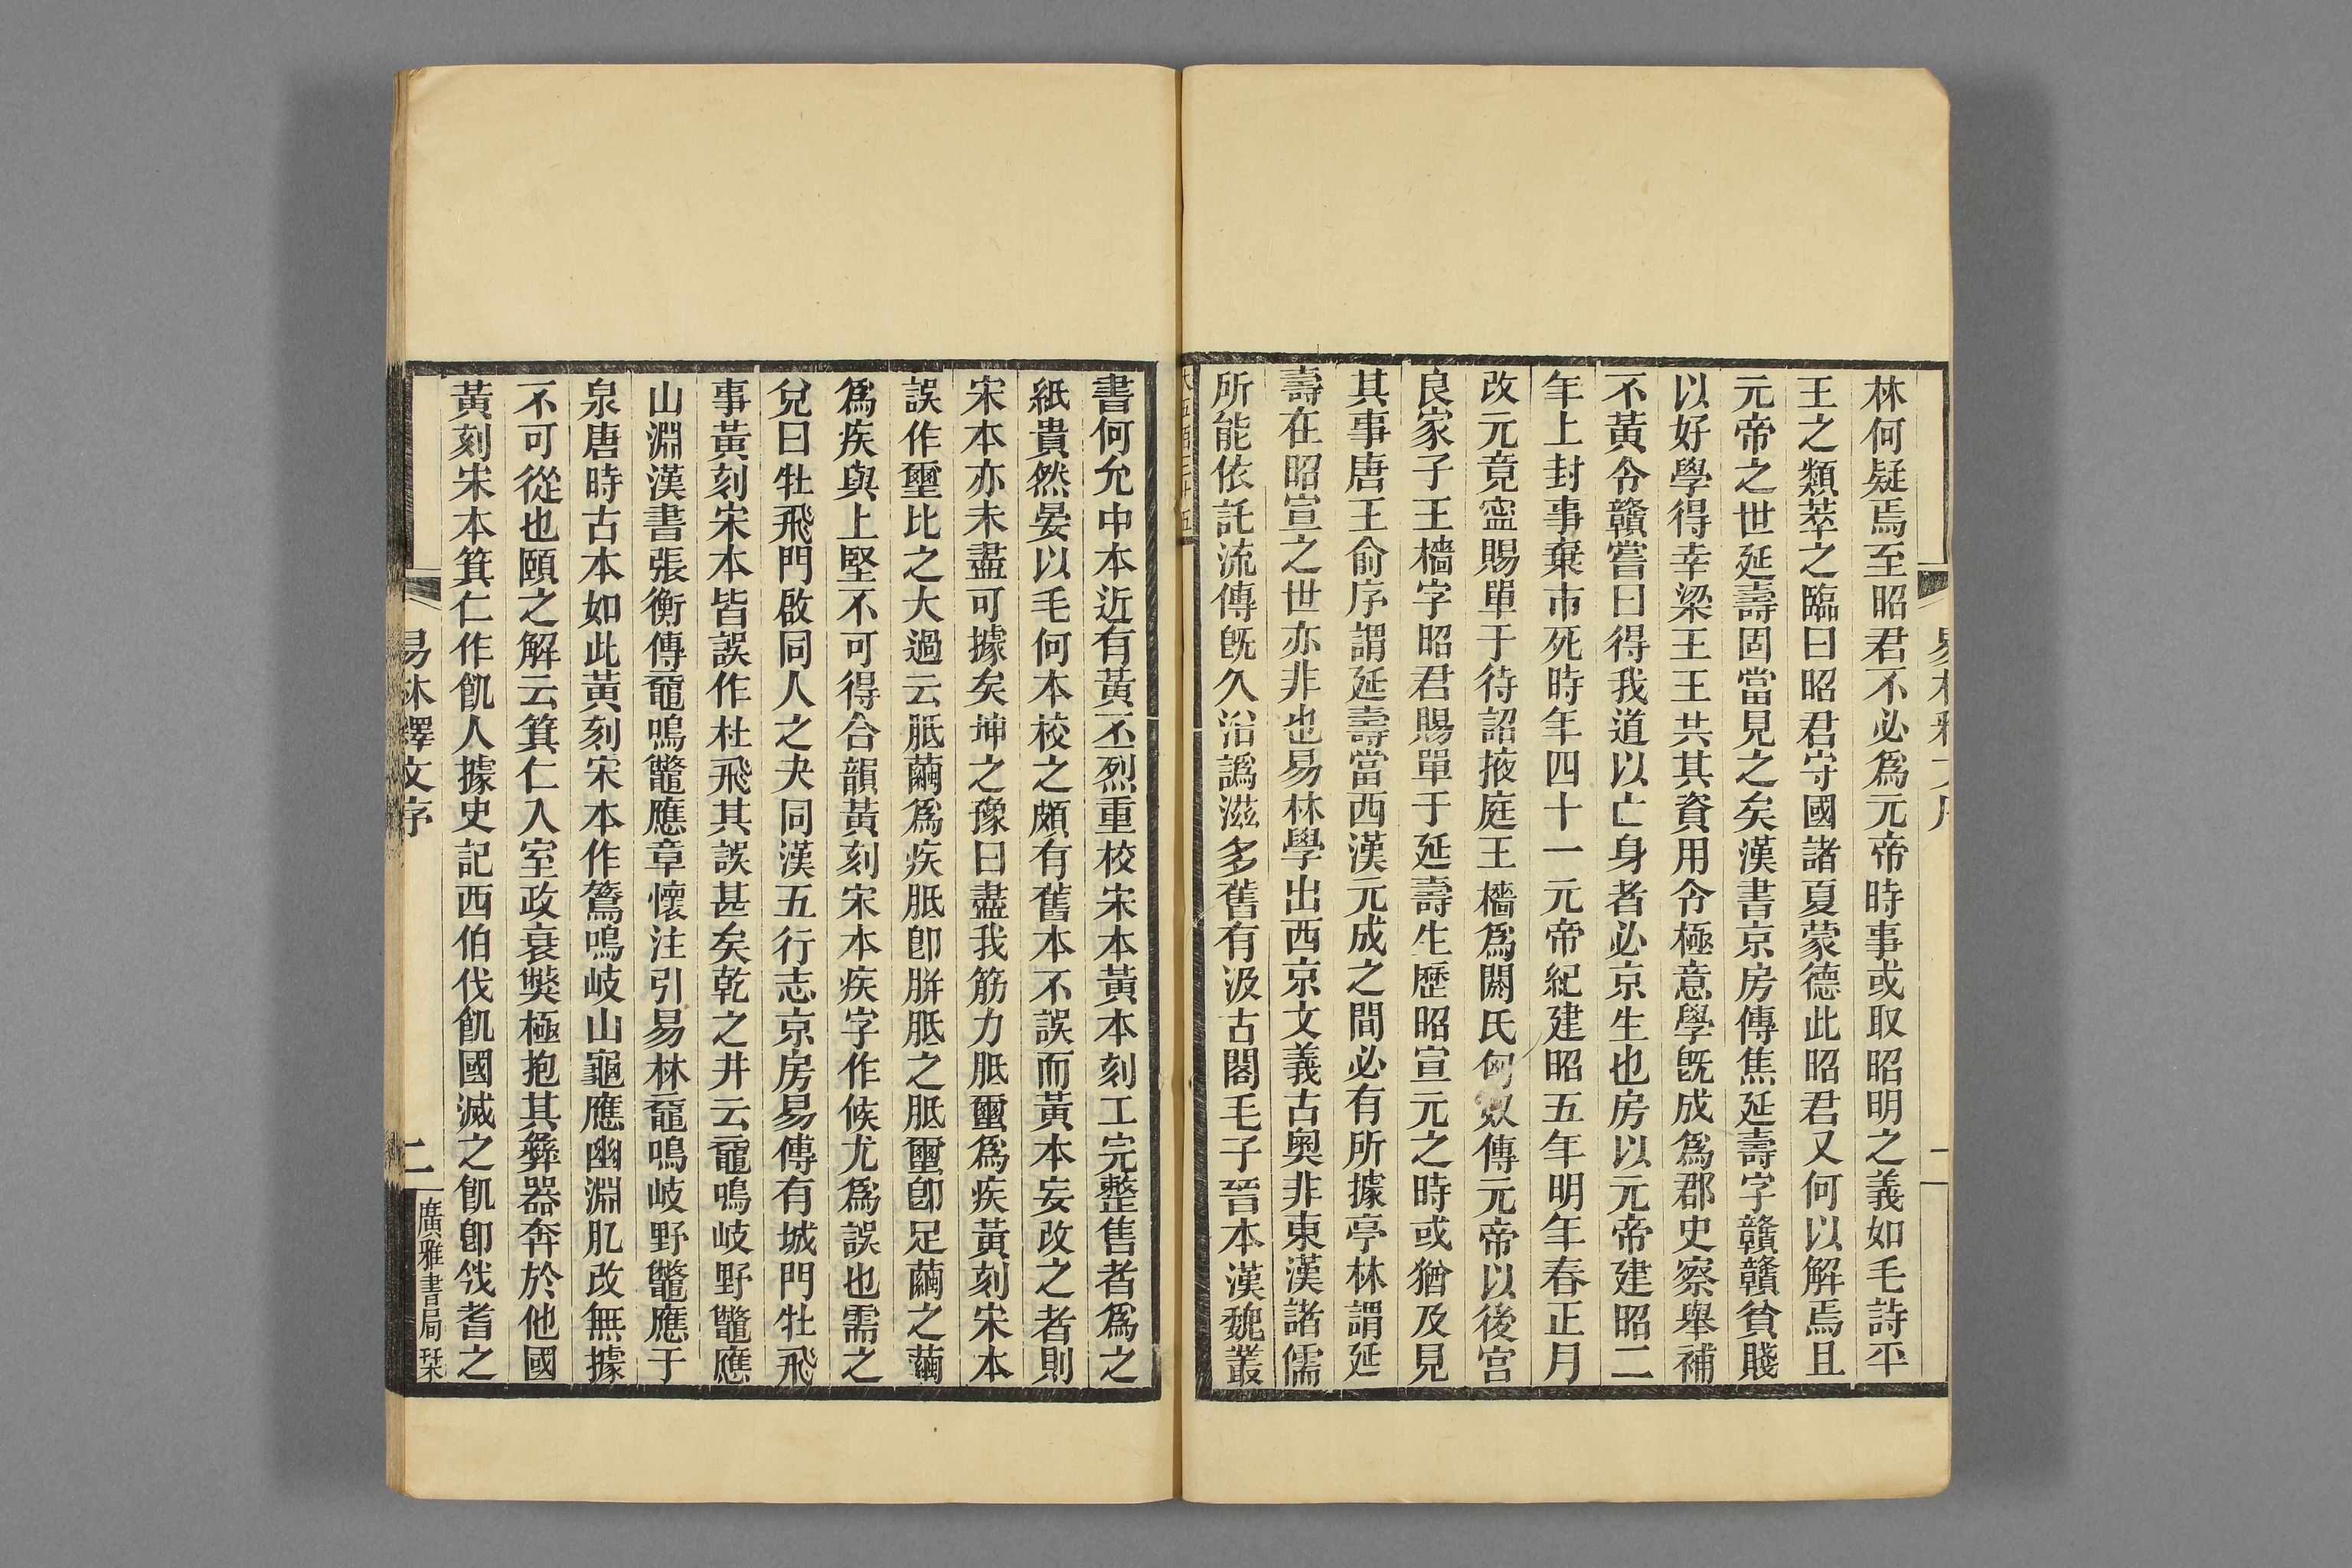 林何疑焉至昭君不必爲元帝時事或取昭明之義如毛詩平
王之類萃之臨曰昭君守國諸夏蒙德此昭君又何以解焉且
元帝之世延壽固當見之矣漢書京房傳焦延壽字贛贛貧賤
以好學得幸梁王王共其資用令極意學旣成爲郡史察舉補
不黃令贛嘗曰得我道以亡身者必京生也房以元帝建昭二
年上封事棄市死時年四十一元帝紀建昭五年明年春正月
改元竟寍賜單于待詔掖庭王檣爲閼氏匈奴傳元帝以後宫
良家子王檣字昭君賜單于延壽生歷昭宣元之時或猶及見
其事唐王俞序謂延壽當西漢元成之間必有所據亭林謂延
壽在昭宣之世亦非也易林學出西京文義古奧非東漢諸儒
所能依託流傳旣久沿譌滋多舊有汲古閣毛子晉本漢魏叢
書何允中本近有黃丕烈重校宋本黃本刻工完整售者爲之
紙貴然晏以毛何本校之頗有舊本不誤而黃本妄改之者則
宋本亦未盡可據矣坤之豫曰盡我筋力胝䘌爲疾黃刻宋本
誤作壐比之大過云胝繭爲疾胝卽胼胝之胝壐卽足繭之繭
爲疾與上堅不可得合韻黃刻宋本疾字作候尤爲誤也需之
兌曰牡飛門啟同人之夬同漢五行志京房易傳有城門牡飛
事黃刻宋本皆誤作杜飛其誤甚矣乾之井云黿鳴岐野鼈應
山淵漢書張衡傳黿鳴鼈應章懷注引易林黿鳴岐野鼈應于
泉唐時古本如此黃刻宋本作鶩鳴岐山龜應幽淵肊改無據
不可從也頤之解云箕仁入室政衰獘極抱其彝器奔於他國
黃刻宋本箕仁作飢人據史記西伯伐飢國滅之飢卽㐹耆之
易林釋文序
二
廣雅書局栞